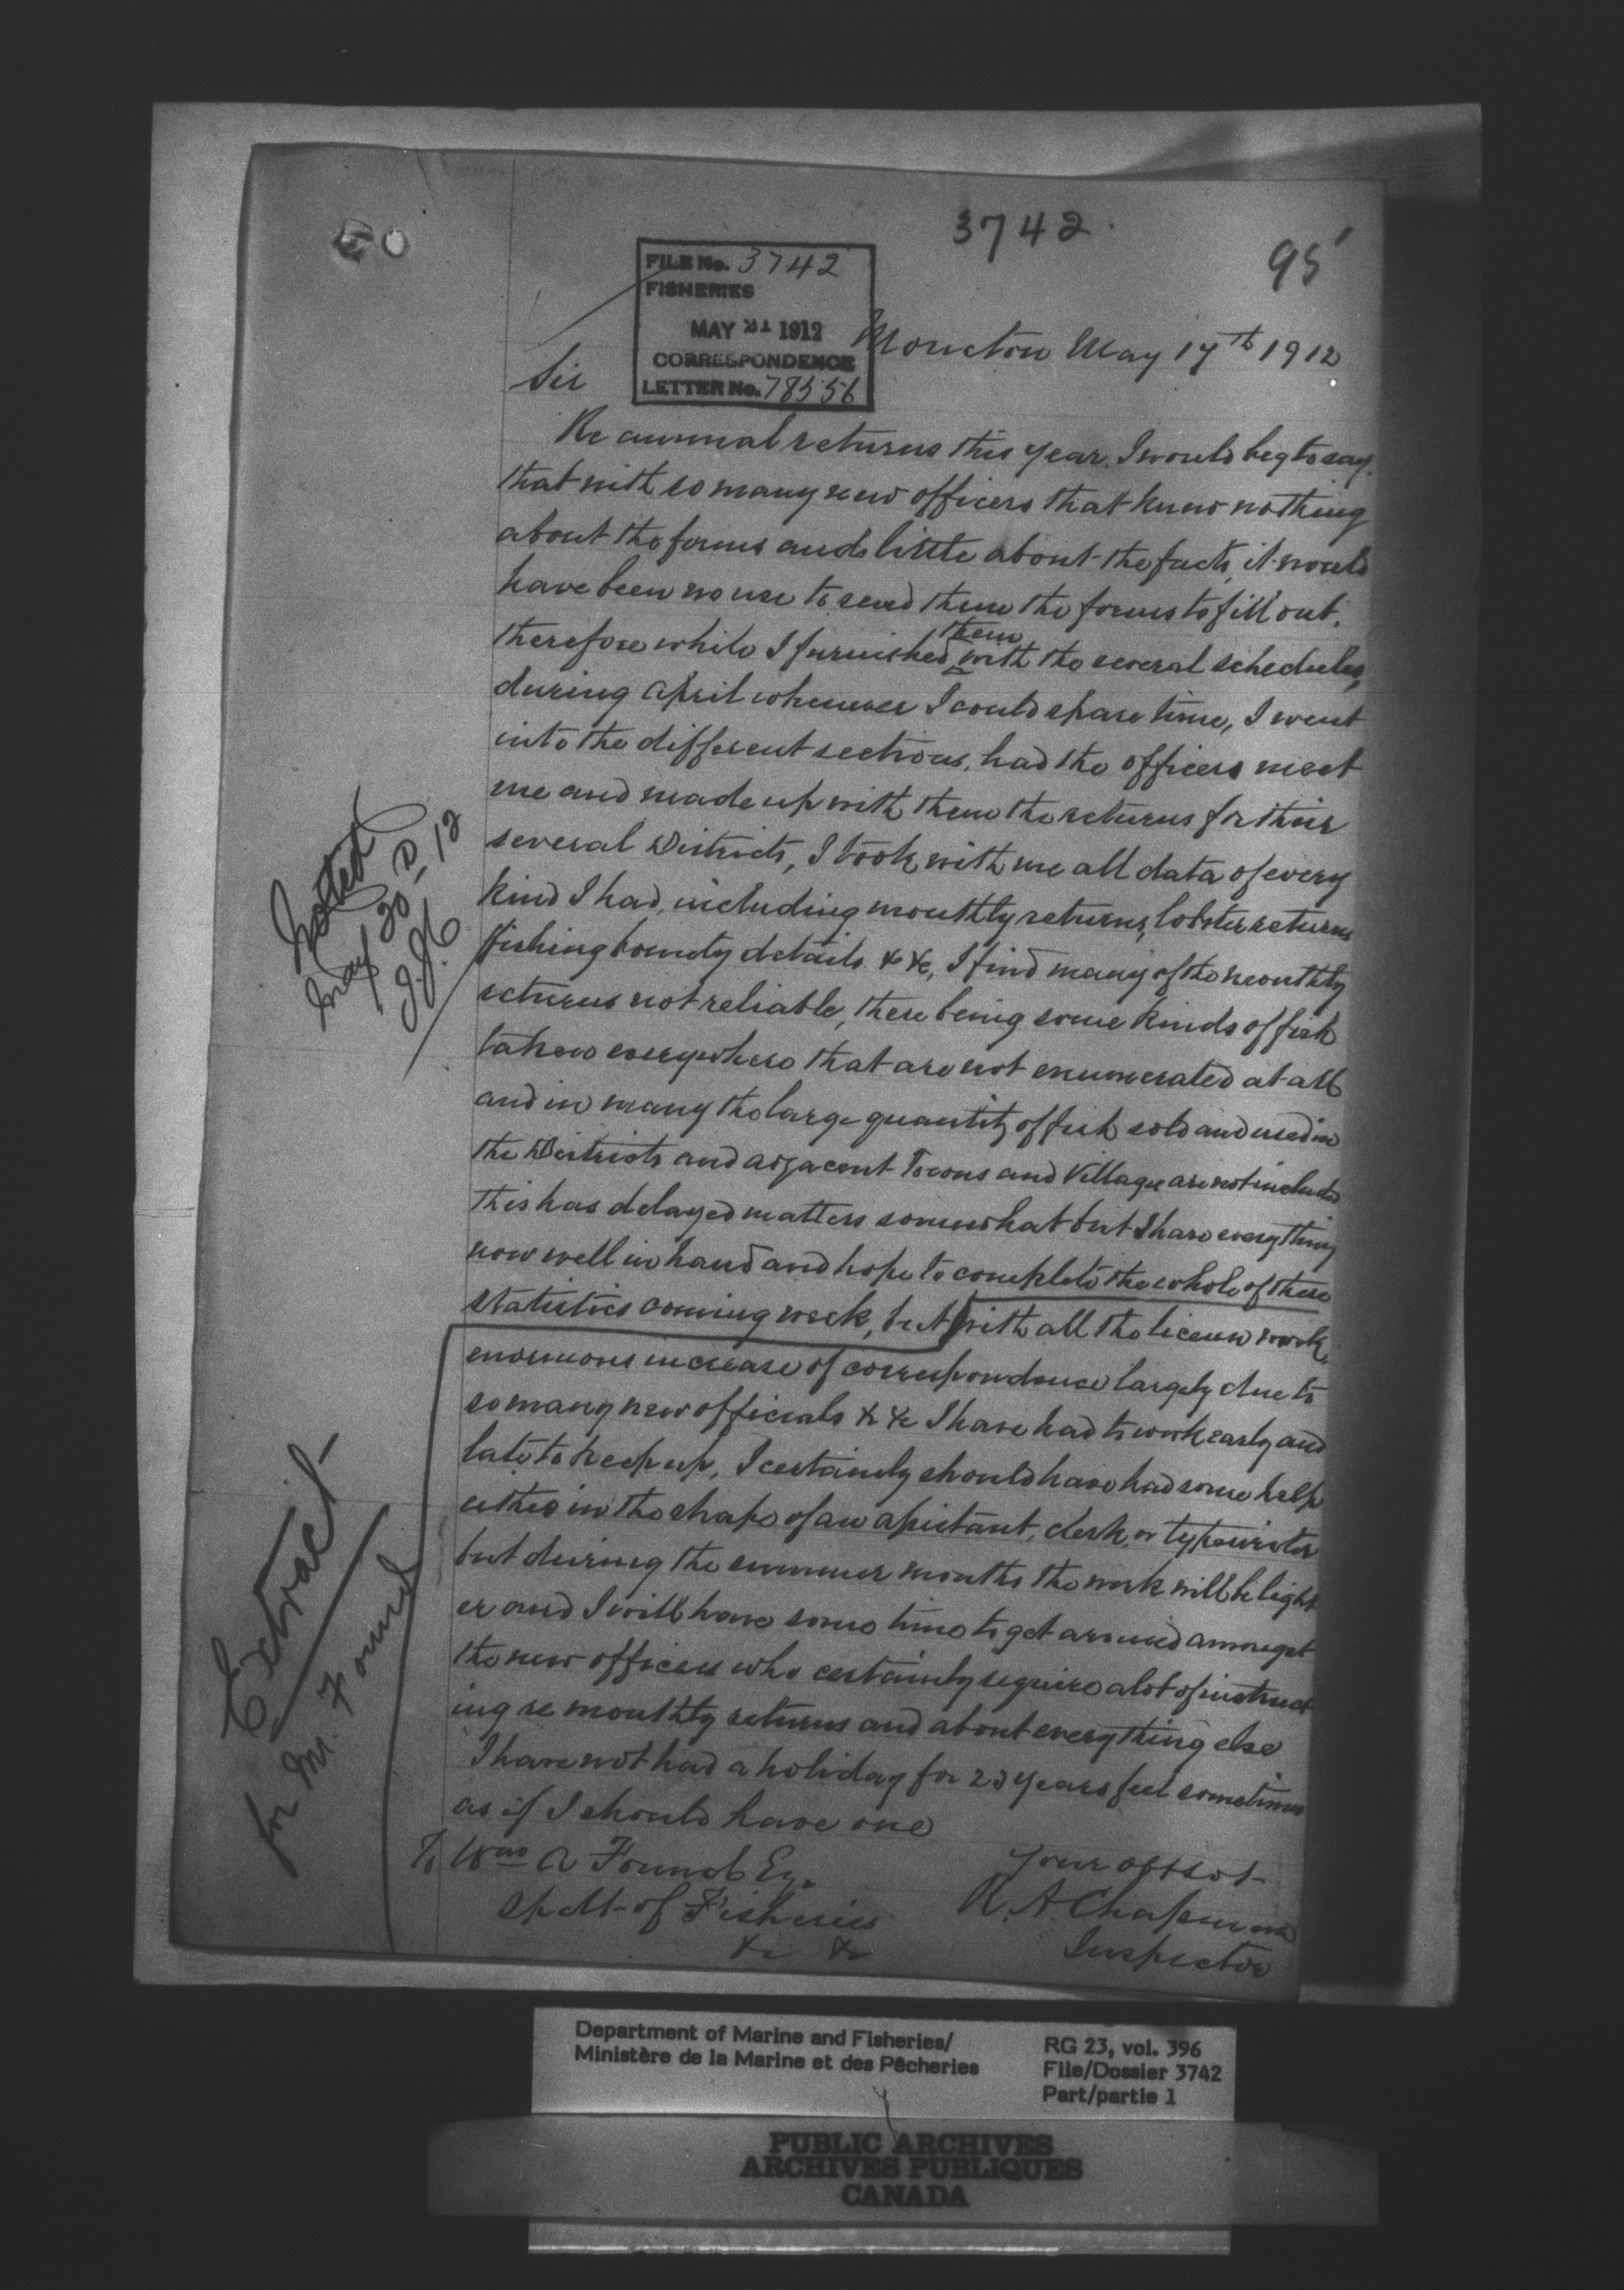 3742
95
FILE No. 3742
FISHERIES
MAY 21 1912
CORRESPONDENCE
LETTER No. 78556
Moncton May 17th 1912
Sir
Re annual returns this year. I would beg to say.
that with so many new officers that knew nothing
about the forms and little about the facts, it would
have been no use to send them the forms to fill out.
therefore while I furnished them with the several schedules,
during April whenever I could spare time, I went
into the different sections, had the officers meet
me and made up with them the returns for their
several Districts, I took with me all data of every
kind I had, including monthly returns, lobster returns
fishing bounty details &c &c, I find many of the monthly
returns not reliable, there being some kinds of fish
taken everywhere that are not enumerated at all
and in many the large quantity of fish sold and used in
the Districts and adjacent Towns and Village are not included
This has delayed matters somewhat but I have everything
now well in hand and hope to complete the whole of these
statistics coming week, but with all the license work,
enormous increase of correspondence largely due to
so many new officials &c &c I have had to work early and
late to keep up, I certainly should have had some help
either in the shape of an assistant, clerk, or typewriter
but during the summer months the work will be light
er and I will have some time to get around amongst
the new officers who certainly require a lot of instruct
ing re monthly returns and about everything else
I have not had a holiday for 23 years feel sometimes
as if I should have one
Your obt sevt
R. A. Chapman
Inspector
To Wm A Found Esq.
Supt of Fisheries
&c &c
Noted
May 20 12
Extract
for Mr. Found
Department of Marine and Fisheries/
Ministère de la Marine et des Pêcheries
RG 23, vol. 396
File/Dossier 3742
Part/partie 1
PUBLIC ARCHIVES
ARCHIVES PUBLIQUES
CANADA